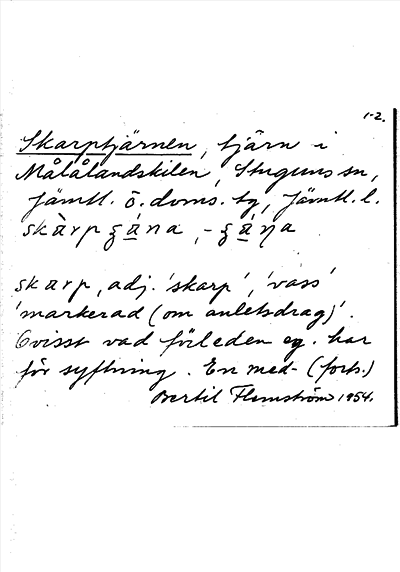 1-2.
Skarptjärnen, tjärn i
Målålandskilen, Stuguns sn,
Jämtl. ö. doms. tg, Jämtl. l.
skàrpʒána, -ʒáŋa
skarp, adj. 'skarp', 'vass'
'markerad (om anletsdrag)'.
Ovisst vad förleden eg. har
för syftning. En med- (forts.)
Bertil Flemström 1954.